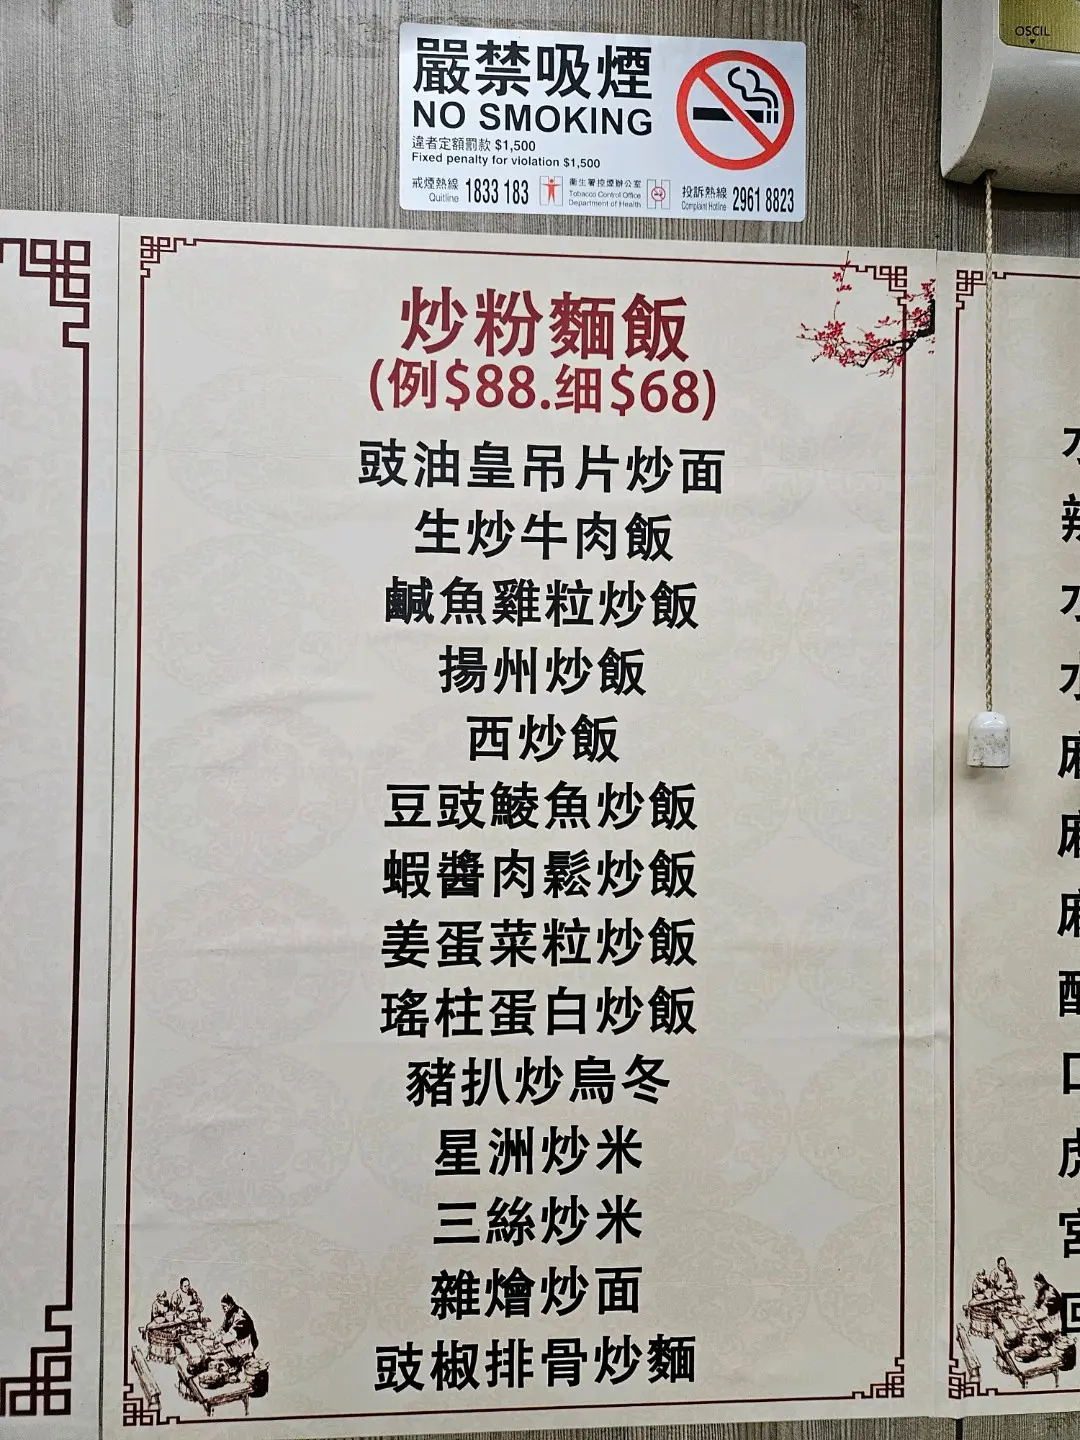 OSCIL
嚴禁吸煙
NO SMOKING
違者定額罰款 $1,500
Fixed penalty for violation $1,500
戒煙熱線 1833 183
Quitline
衞生署控煙辦公室
Tobacco Control Office
Department of Health
投訴熱線 2961 8823
Complaint Hotline
炒粉麵飯
(例$88.细$68)
豉油皇吊片炒面
生炒牛肉飯
鹹魚雞粒炒飯
揚州炒飯
西炒飯
豆豉鯪魚炒飯
蝦醬肉鬆炒飯
姜蛋菜粒炒飯
瑤柱蛋白炒飯
豬扒炒烏冬
星洲炒米
三絲炒米
雜燴炒面
豉椒排骨炒麵
水
辣
水
水
麻
麻
麻
口
虎
宮
回